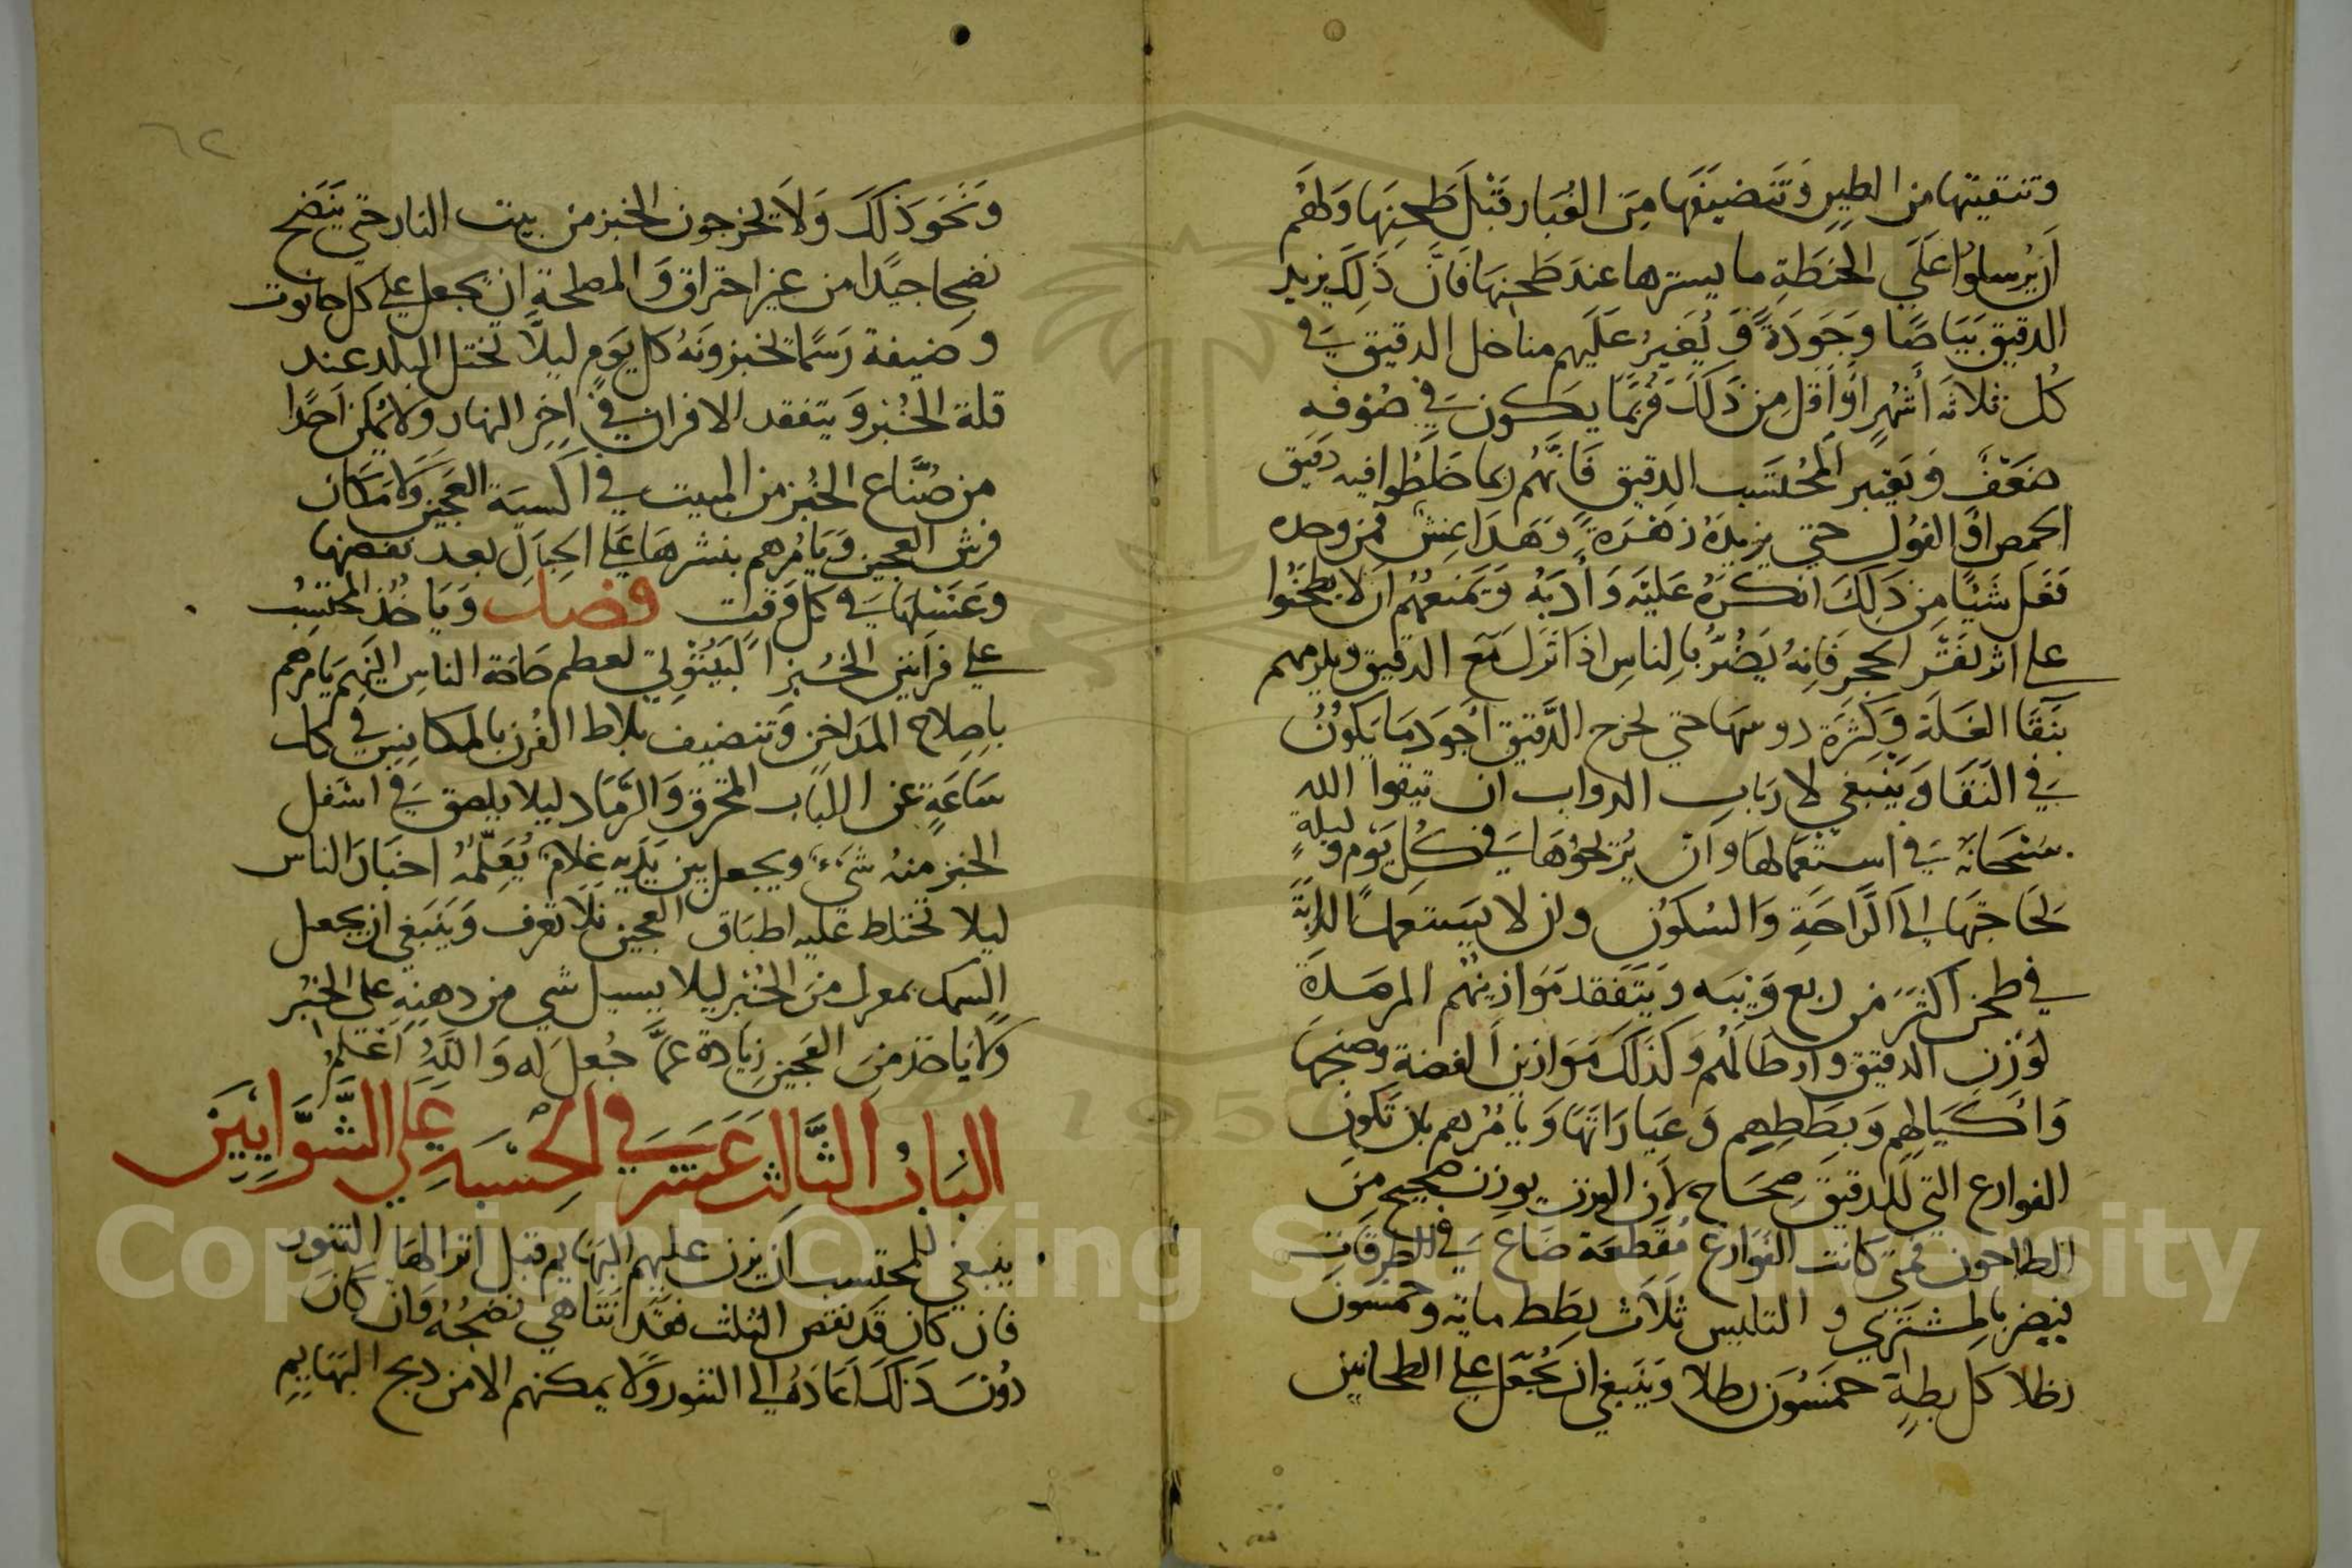 وتنقيتها من الطين وَتَنضيفَها مِنَ الغُبَار قَبْلَ طَحنِهَا وَلهُم
اَن يُرسلوُا عَلَي الحنطَةِ ما يسترها عند طَحنِهَا فَانَّ ذَلِكَ يزيد
الدقيق بَيَاضًا وَجَوَدَةً وَيُغَيرُ عَلَيهم مناخل الدقيق في
كُل ثلاثه أشهُرٍ اَو اَقل مِن ذَلكَ فَرُبَّمَا يكون في صُوفه
ضَعَفً وَيَعتبر المُحتَسَب الدقيق فَانَّهُم ربما خَلَطُوا فيه دقيق
الحمص او الفول حتي يزيدهُ زهَرَةً وَهَذَا غِشٌ فمن وجده
فَعَل شَيًا مِن ذلِكَ انكرَهُ عَليَه وَأدَبَهُ وَتَمنعُهُم ان لا يطحَنُوا
علي اثر نَقر الحجر فَانِهُ يَضُرُّ بِالناسِ اذَا نَزَل مَعَ الدقيق ويلزمهم
بنَقَا الغَلَة وَكِثَرَة دوسهَا حتي يخرج الدَّقيق اَجوَد مَا يَكُونُ
في النَقَا وَيَنبغي لارباب الدواب ان تيقوا الله
سُبحَانَهُ في استعمَالهَا وَان يُرَيحُوُهَا في كُل يَوْم وَليلَةٍ
لحَاجتِهَا اِلى الَرَّاحَةِ وَالسُكوُن وان لا يَستعمل الدابَّة
في طحن اكثَرَ من ربع وَيبَه وَيَتَفَقد مَوَازينُهم المرصَدَة
لوَزن الدقيق وارطَالَهُم وَكذَلكَ مَوَازين الفضة وصنجهَا
وَاكَيَالهِم وَبِطَطِهِم وَعيَارَاتهَا وَيَامُرهم بان تكون
القوارع التي للدقيق صِحَاح لان الوزن يوزن صحيح مِن
الطاحون فمتي كانت القوارع مُقَطعَة ضَاع في الطرقات
فيضر بالمشتَري و التليس ثلاث بِطَط مايه وخمسون
رطلا كل بطةٍ خَمسُون رطلا وَيَنبغي ان يُجعَل علي الطحانين
٦٢
وَنَحَو ذلكَ وَلاَ يخرجون الخبز من بيت النار حتي يَنَضح
نضجا جيدًا من غير احتراق وَالمصلحة ان يجعل علي كل حانوت
وضيفة رَسمًا يخبزونَهُ كل يَوم ليلاَّ تختل البلد عند
قلة الخُبز وَيتفقد الافران في اخر النهار ولا يُمكن اَحدًا
من صُنَّاع الخبز من المبيت في اكسية العَجين وَلا مَكان
فرش العجين وَيَامُرهم بنشرهَا علي الحِبَالِ بعد نفضها
وَغَسْلهَا في كل وَقت فصل وَيَاخُذ المُحتسبُ
علي فرَانين الخُبز البَيتُوتي لعظم حَاجَة الناسِ اليَهِم يَامرهم
باِصِلاح المَدَاخن وَتنضيف بلاط الفُرن بالمكانس في كل
سَاعَةٍ عن اللبَاب المحترق وَالرَّمَاد ليلا يلصق في اسَفل
الخبز منهُ شَيءٌ ويجعل بين يَدَيه غلامٌ يُعَلّمهُ اخبَازَ الناس
ليلا تختلط عليه اطبَاق العجين فَلا تعرف وَيَنبَغي ان يجعل
السمك بمعزل مِنَ الخُبز ليلا يسيل شي من دهنِهِ على الخبز
وَلا يَاخذ مِنَ العَجين زيَادة عَمَّا جُعلَ له وَاللَهُ اَعَلم
البَابُ الثَّالِث عَشَر في الحِسْبَةِ عَلَي الشَّوَّايِيَن
ينبغي للمحتسب ان يزن عليهم البهَايم قبل انزالهَا التنور
فان كان قَد نقص الثلث فقد اتنَاهي نضجُهُ وَان كَان
دوُنَ ذَلكَ اعَادهُ الي التنور وَلا يمكنهم الا من دبح البهَايم